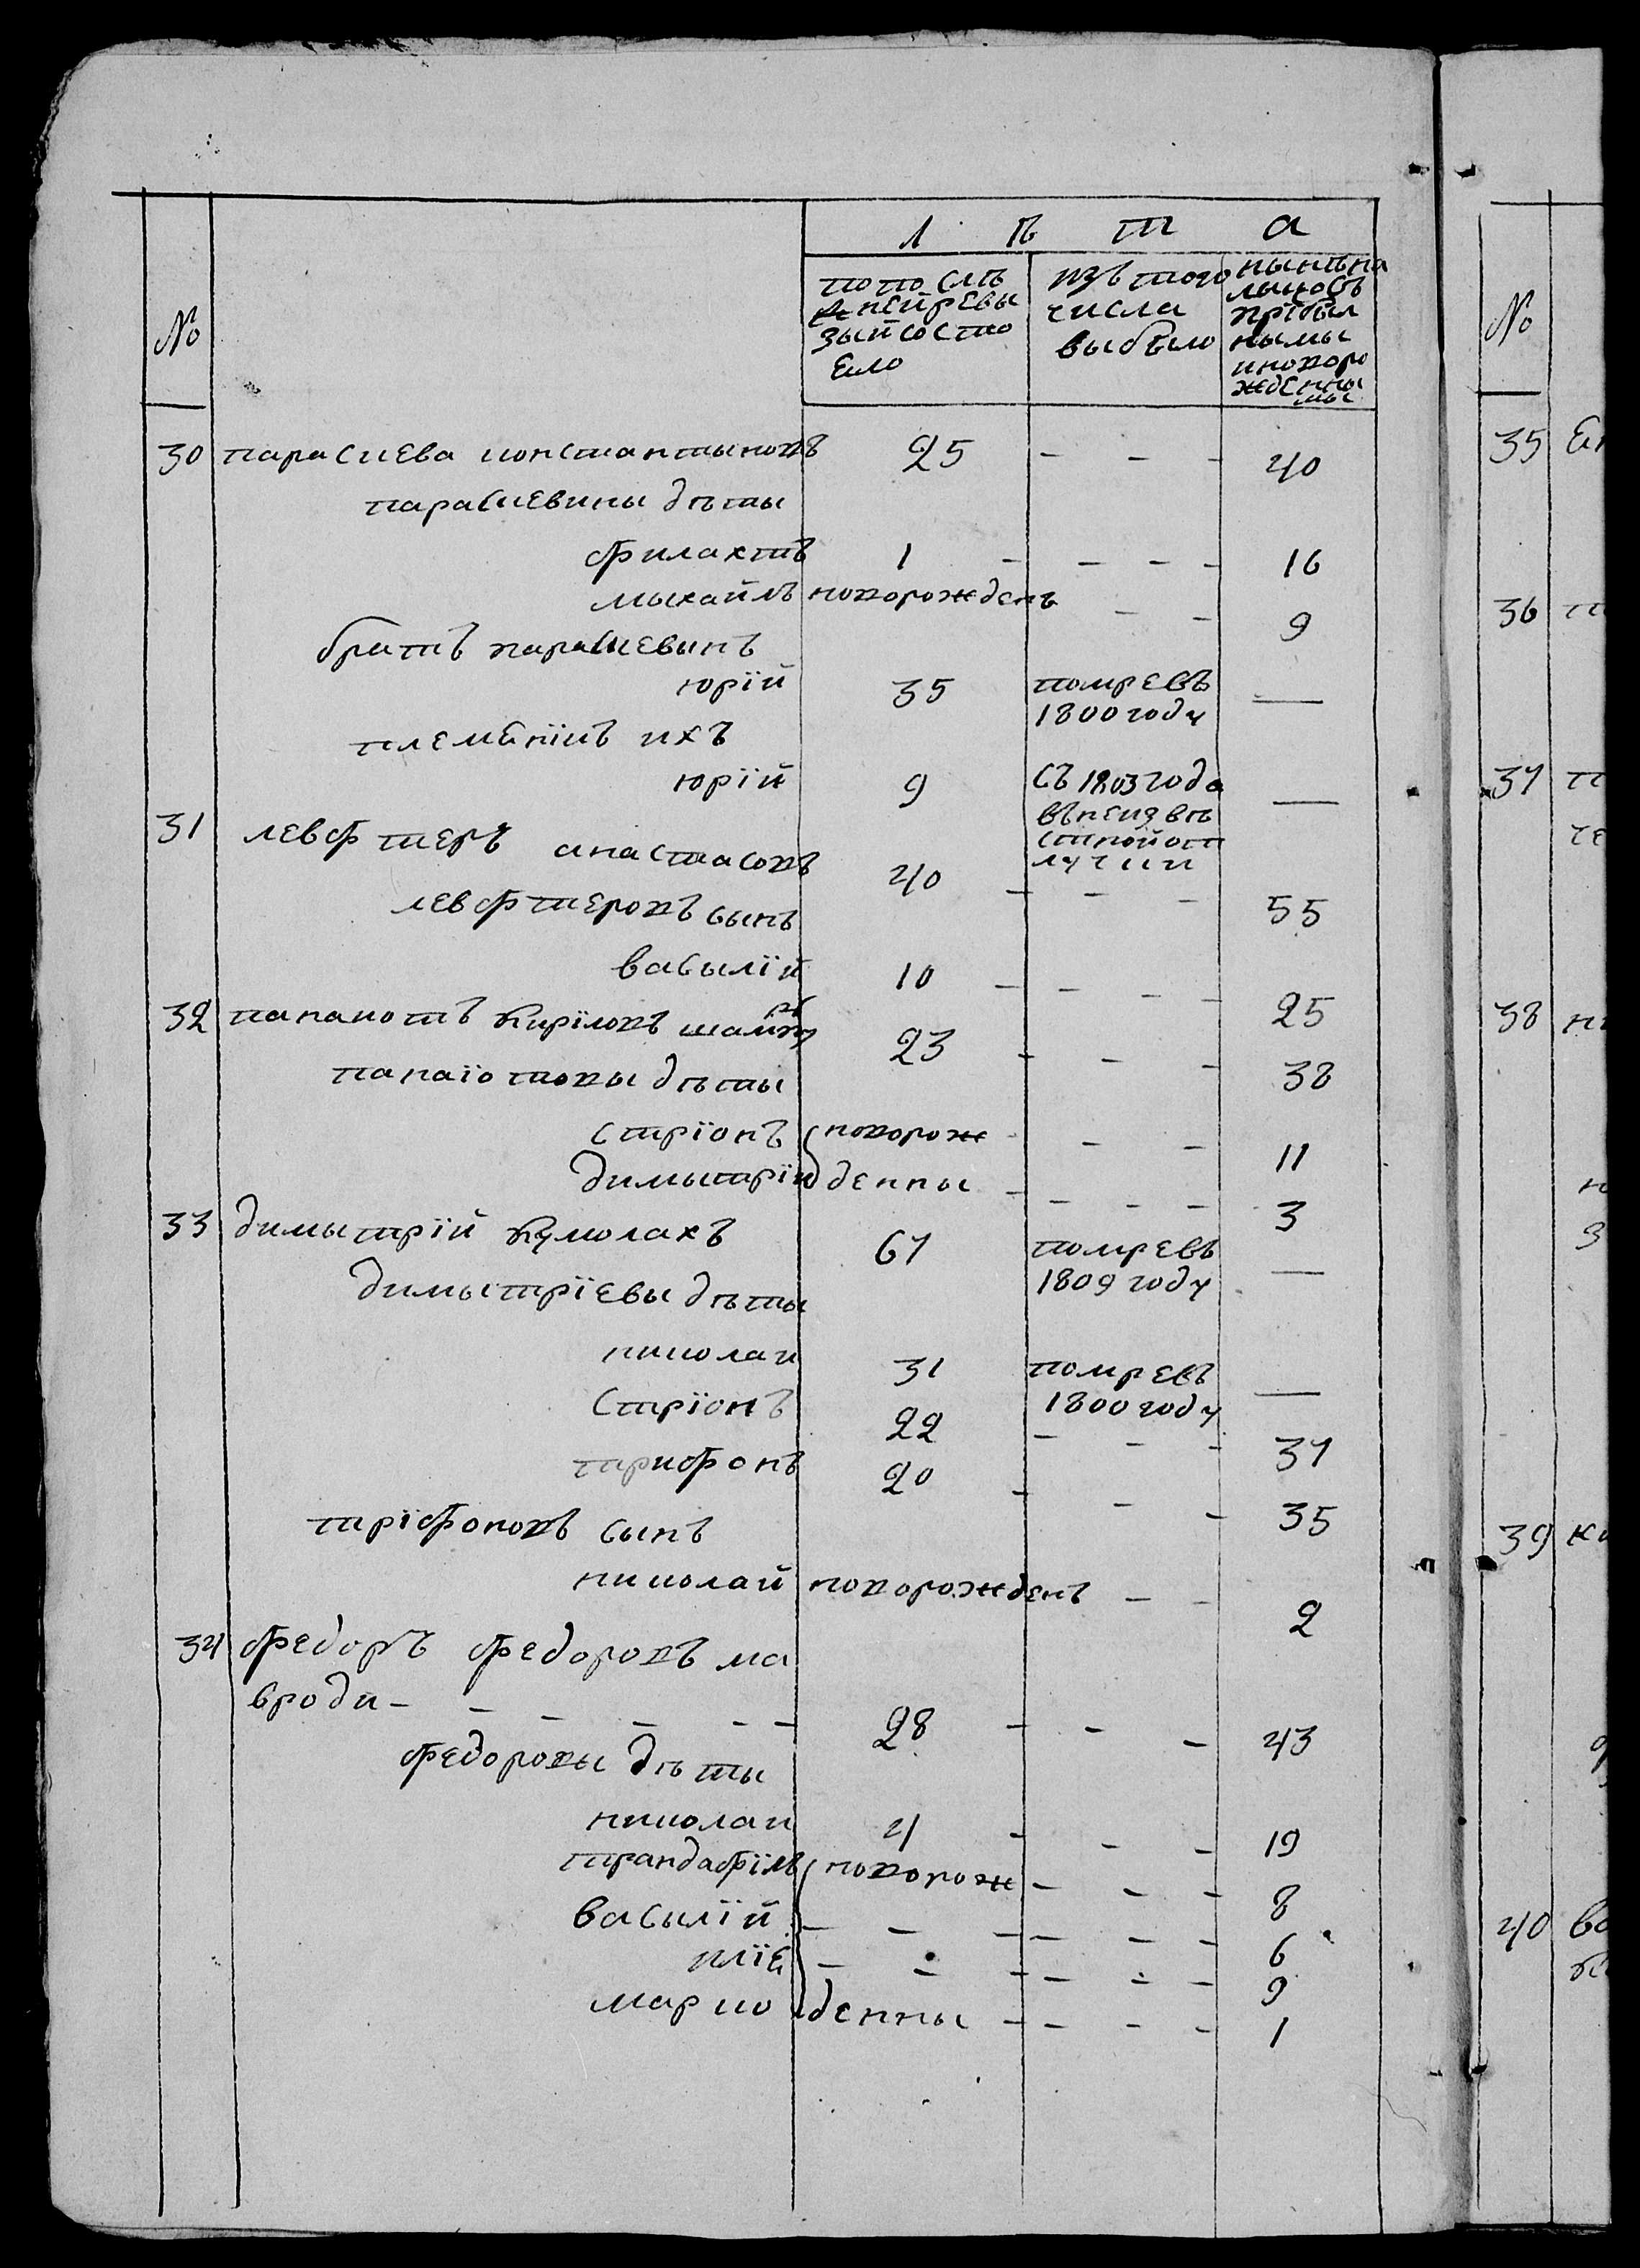 л ѣ т а
№
по послѣ
дней ревы
зыи состо
еяло
изъ того
числа
выбыло
нынѣ на
лыцовъ
прибыл
нымы
и новоро
жденны
мы
№
30 параскева константыновъ 25 - - - 40
параскевины дѣты
филахтъ 1 - - - - 16
мыхайлъ новорожденъ - - 9
братъ параскевынъ
юрїй 35 помре въ —
1800 году
племѣнїкъ ихъ
юрїй 9 съ 1803 года —
въ неизвѣ
стной от
лучки
31 левфтеръ анастасовъ 40 - - - 55
левфтеровъ сынъ
васылїй 10 - - - - 25
32 панаиотъ кирїловъ 23 - - - 38
панаїотовы дѣты
стрїонъ новорож - - 11
димытрїи денны - - - - 3
33 димытрїй кумолахъ 67 помре въ —
1809 году
димытрїевы дѣты
николаи 31 помре въ —
1800 году
стрїонъ 22 - - - 37
трифонъ 20 - - - 35
трїфоновъ сынъ
николай новорожденъ - - 2
34 федоръ федоровъ ма
вроди - - - - - - 28 - - - 43
федоровы дѣты
николаи 4 - - - 19
трандафїлъ новорож - - - 8
васылїй - - - - - - 6
илїе - - - - - - 9
марко денны - - - - 1
35
36
37
38
39
40